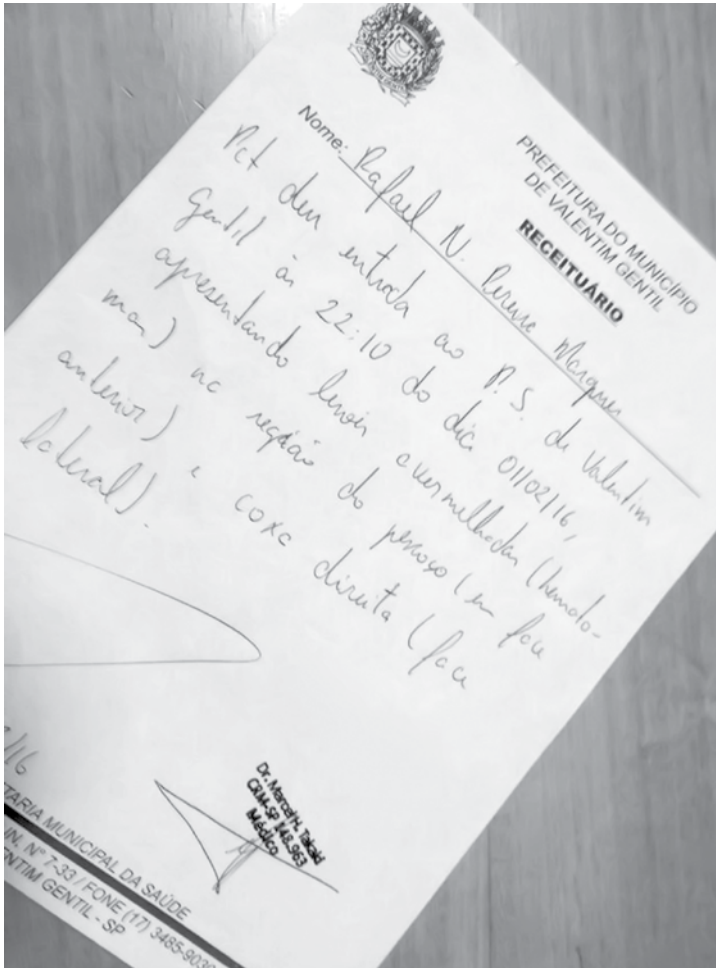 PREFEITURA DO MUNICÍPIO
DE VALENTIM GENTIL
RECEITUÁRIO
Nome: Rafael N. Pereira Marques
Pct deu entrada ao P.S. de Valentim
Gentil às 22:10 do dia 01/02/16,
apresentando lesões avermelhadas (hemato-
mas) na região do pescoço (em face
anterior) e coxa direita (face
lateral).
/16
Dr. Marcel H.
CRM-SP 148.963
Médico
TARIA MUNICIPAL DA SAÚDE
IN, Nº 7-33 / FONE (17) 3485-9030
ENTIM GENTIL - SP